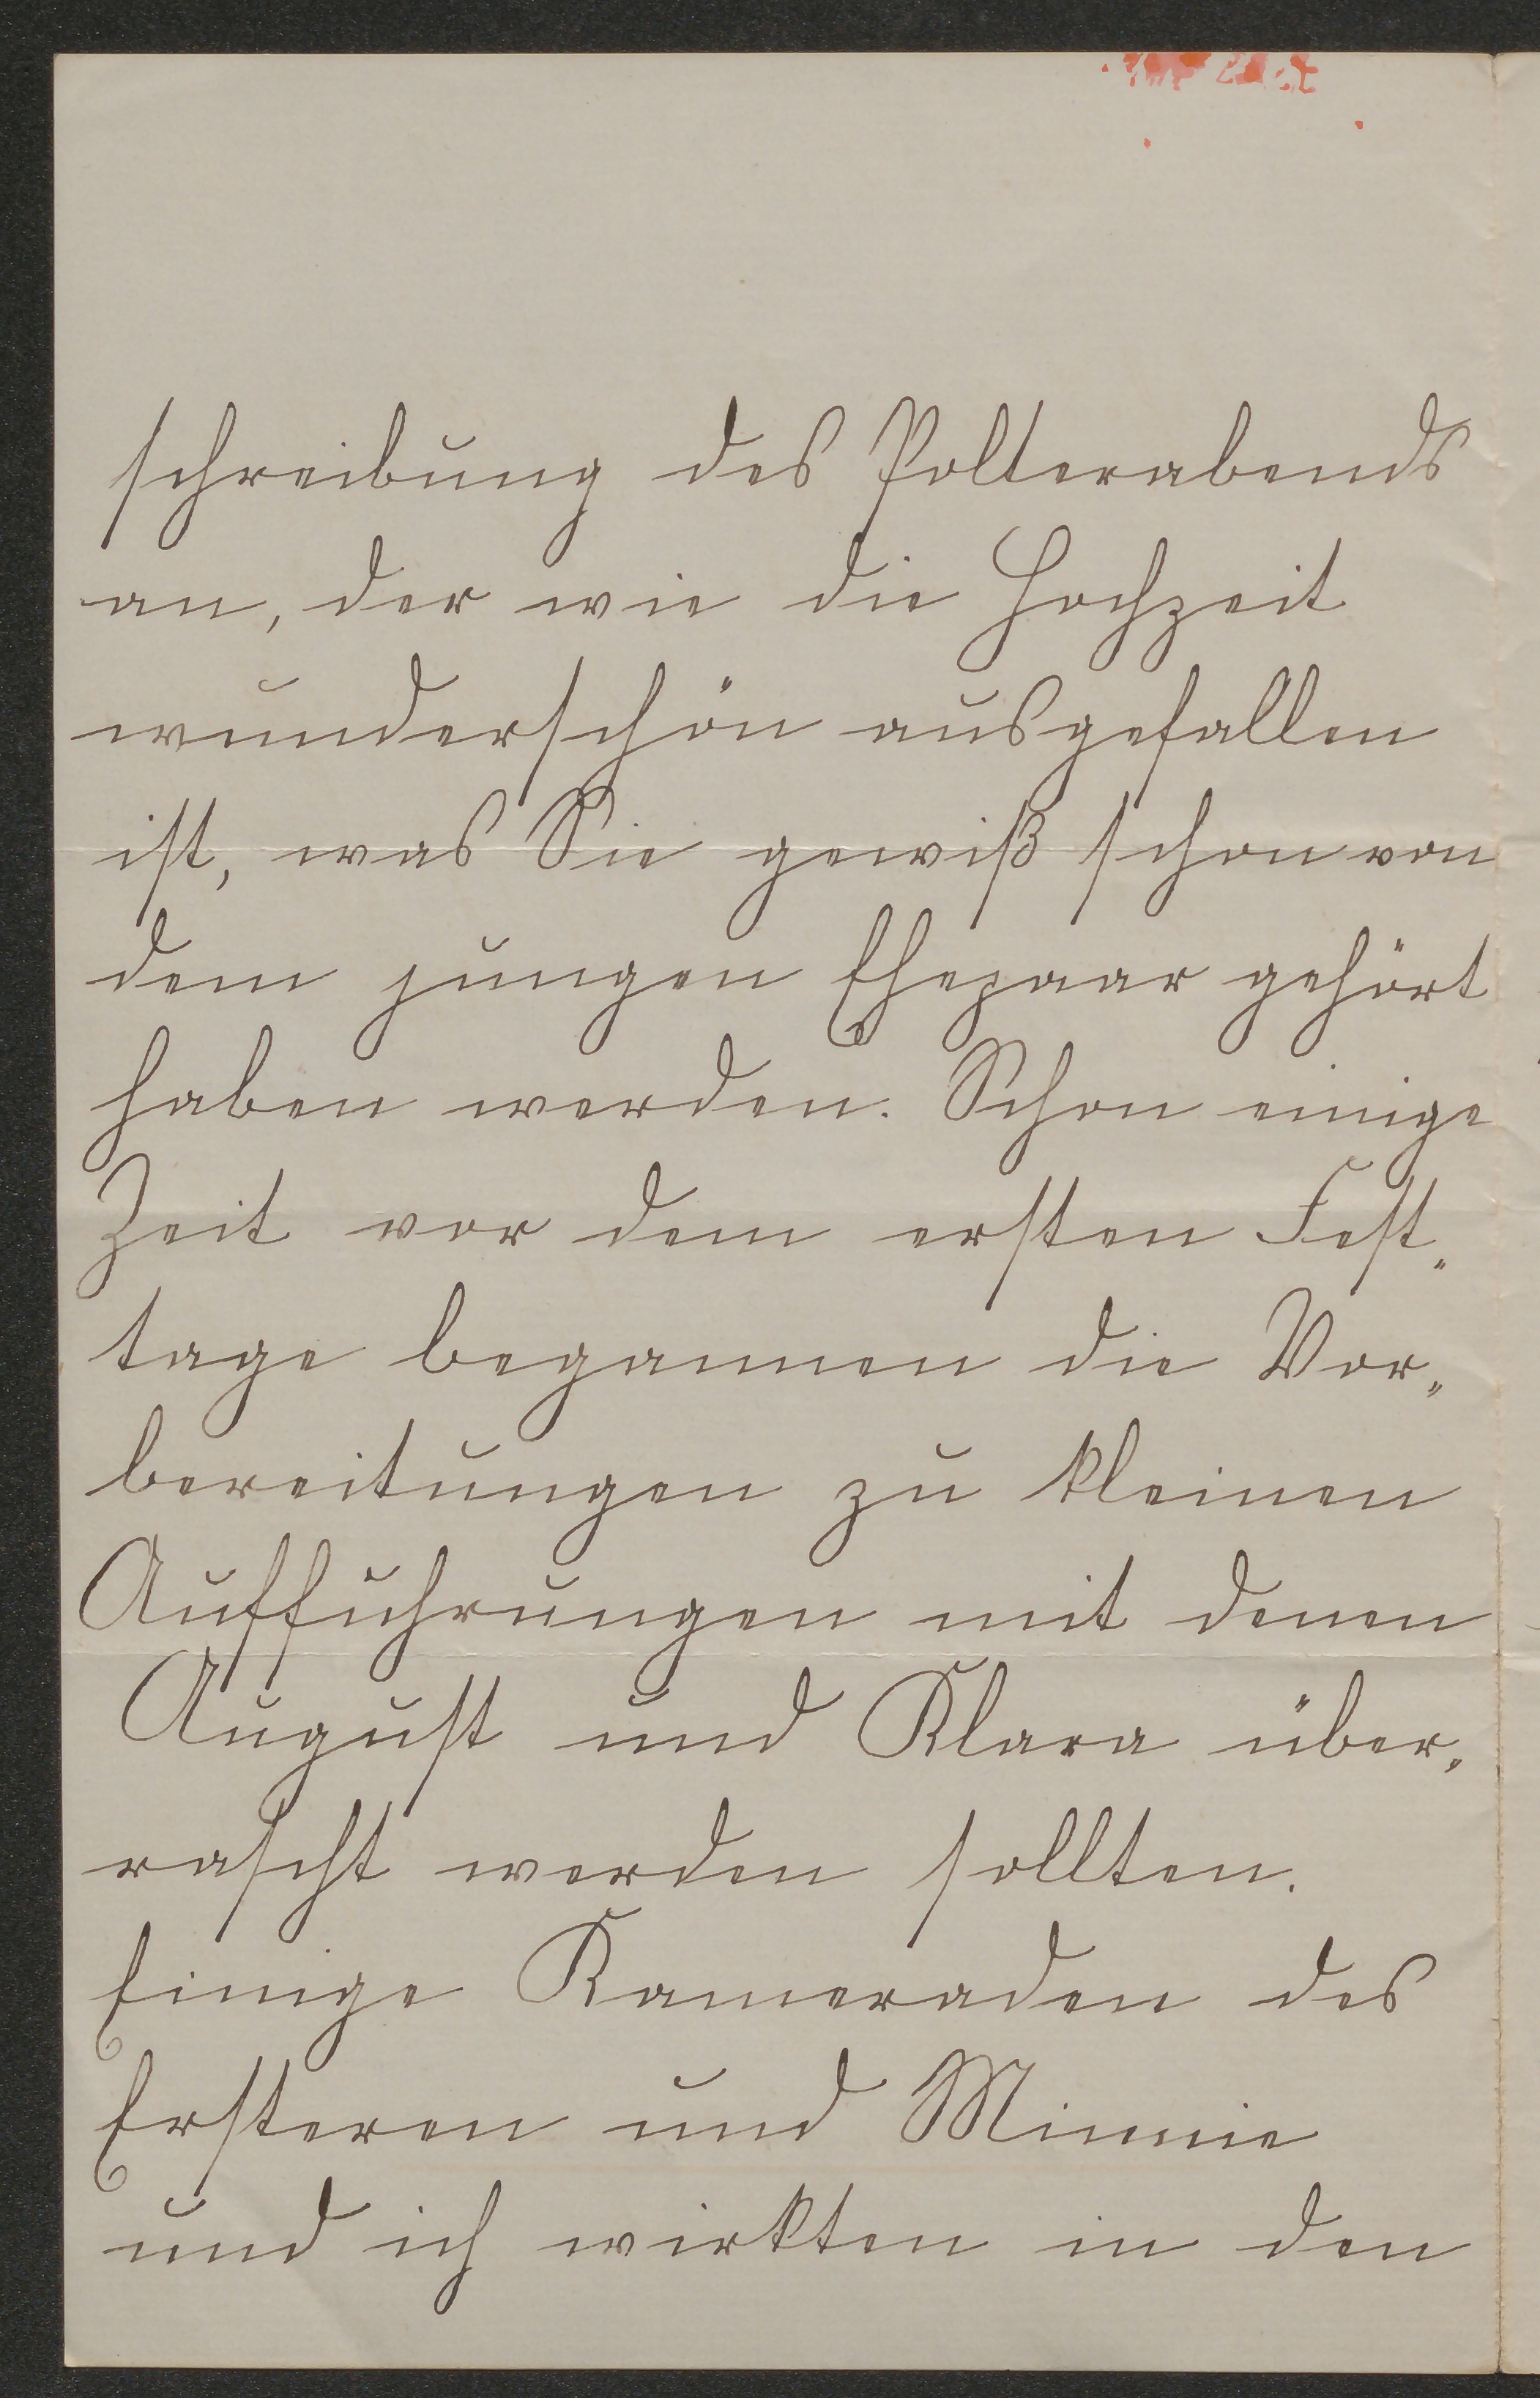 schreibung des Polterabends
an, der wie die Hochzeit
wunderschön ausgefallen
ist, was Sie gewiß schon von
dem jungen Ehepaar gehört
haben werden. Schon einige
Zeit vor dem ersten Fest„
tage begannen die Vor„
bereitungen zu kleinen
Aufführungen mit denen
August und Klara über„
rascht werden sollten.
Einige Kameraden des
Ersteren und Minnie
und ich wirkten in den